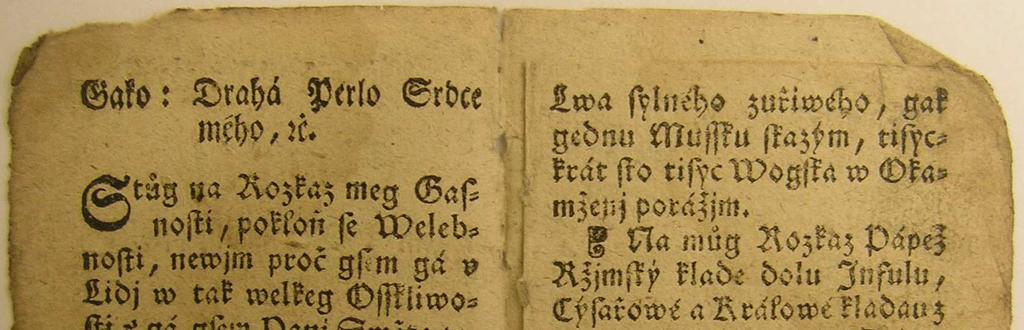 Gako: Drahá Perlo Srdce
mého, ꝛč.
Stůg na Rozkaz meg Gas-
nosti, pokloň se Weleb-
nosti, newjm proč gsem gá v
Lidj w tak welkeg Osskliwo-
sti gá gsem Panj
Lwa sylného zuřiwého, gak
gednu Mussku skazým, tisyc-
krát sto tisyc Wogska w Oka-
mženj porážjm.
Na můg Rozkaz Pápež
Ržjmský klade dolu Jnfulu,
Cýsařowé a Králowé kladau z